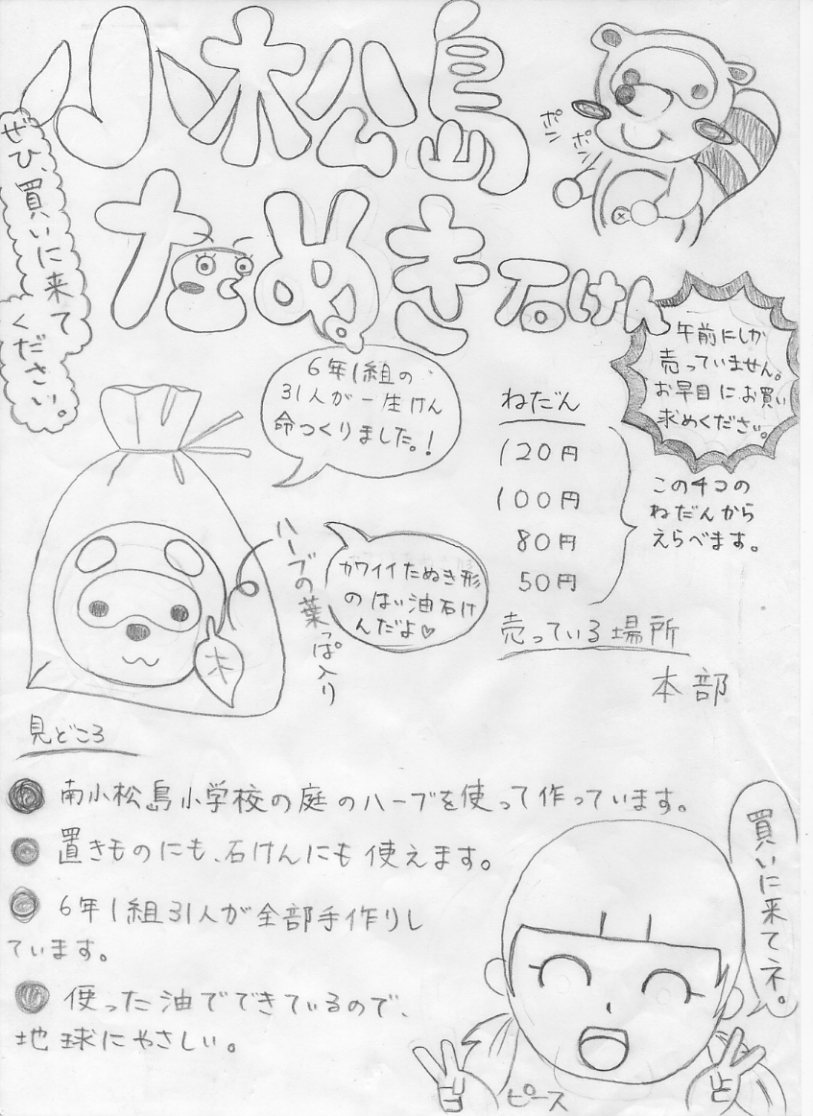 小松島
たぬき石けん
ポン
ポン
ぜひ、買いに来て
ください。
午前にしか
売っていません。
お早目にお買い
求めください。
6年1組の
31人が一生けん
命つくりました。!
ねだん
120円
100円
80円
50円
この4コの
ねだんから
えらべます。
ハーブの葉っぱ入り
カワイイたぬき形
のはい油石け
んだよ♡
木
売っている場所
本部
見どころ
南小松島小学校の庭のハーブを使って作っています。
置きものにも、石けんにも使えます。
6年1組31人が全部手作りし
ています。
使った油でできているので、
地球にやさしい。
買いに来てネ。
ピース